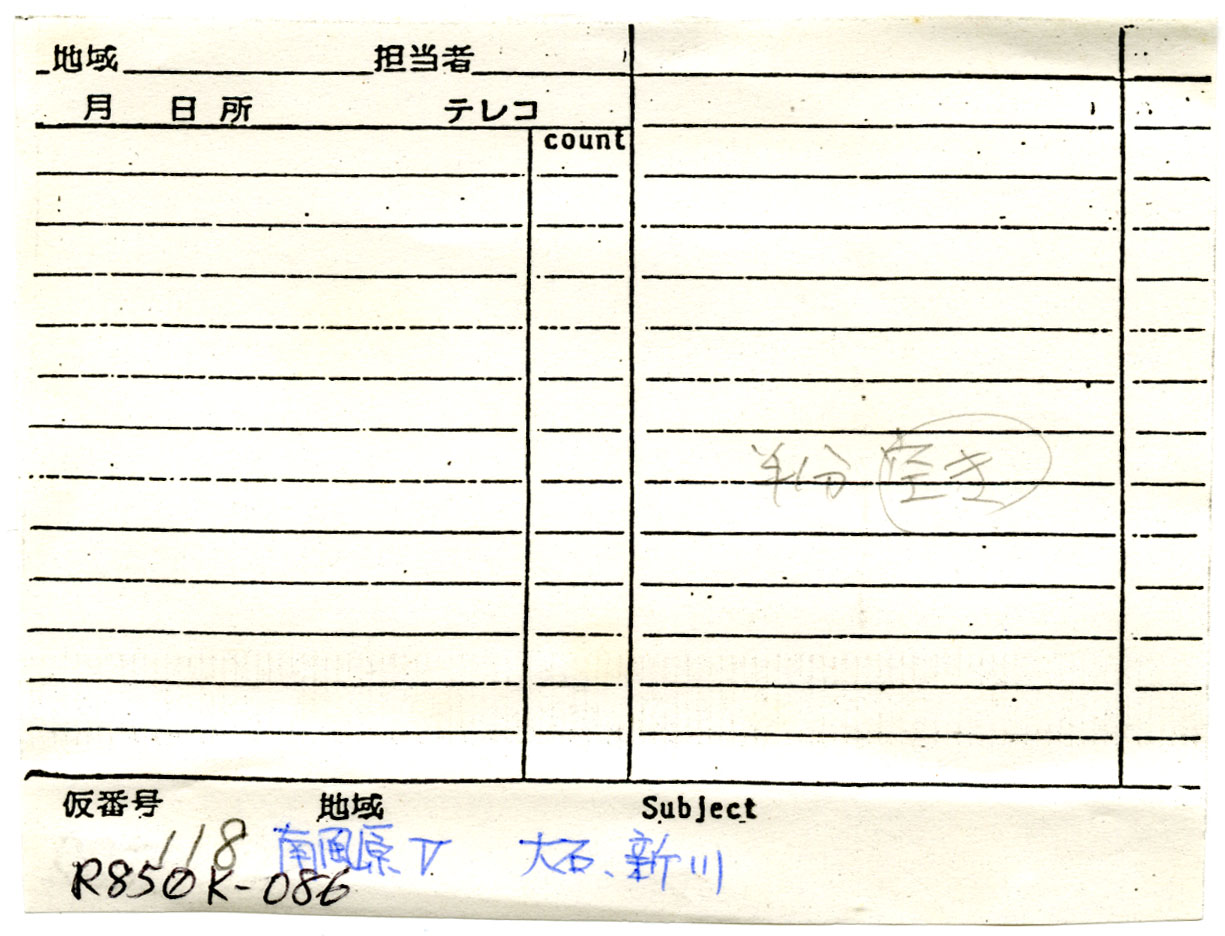 地域 担当者
月 日 所 テレコ
count
半分 空き
仮番号 地域 Subject
118 南風原 V 大石、新川
R850R-086